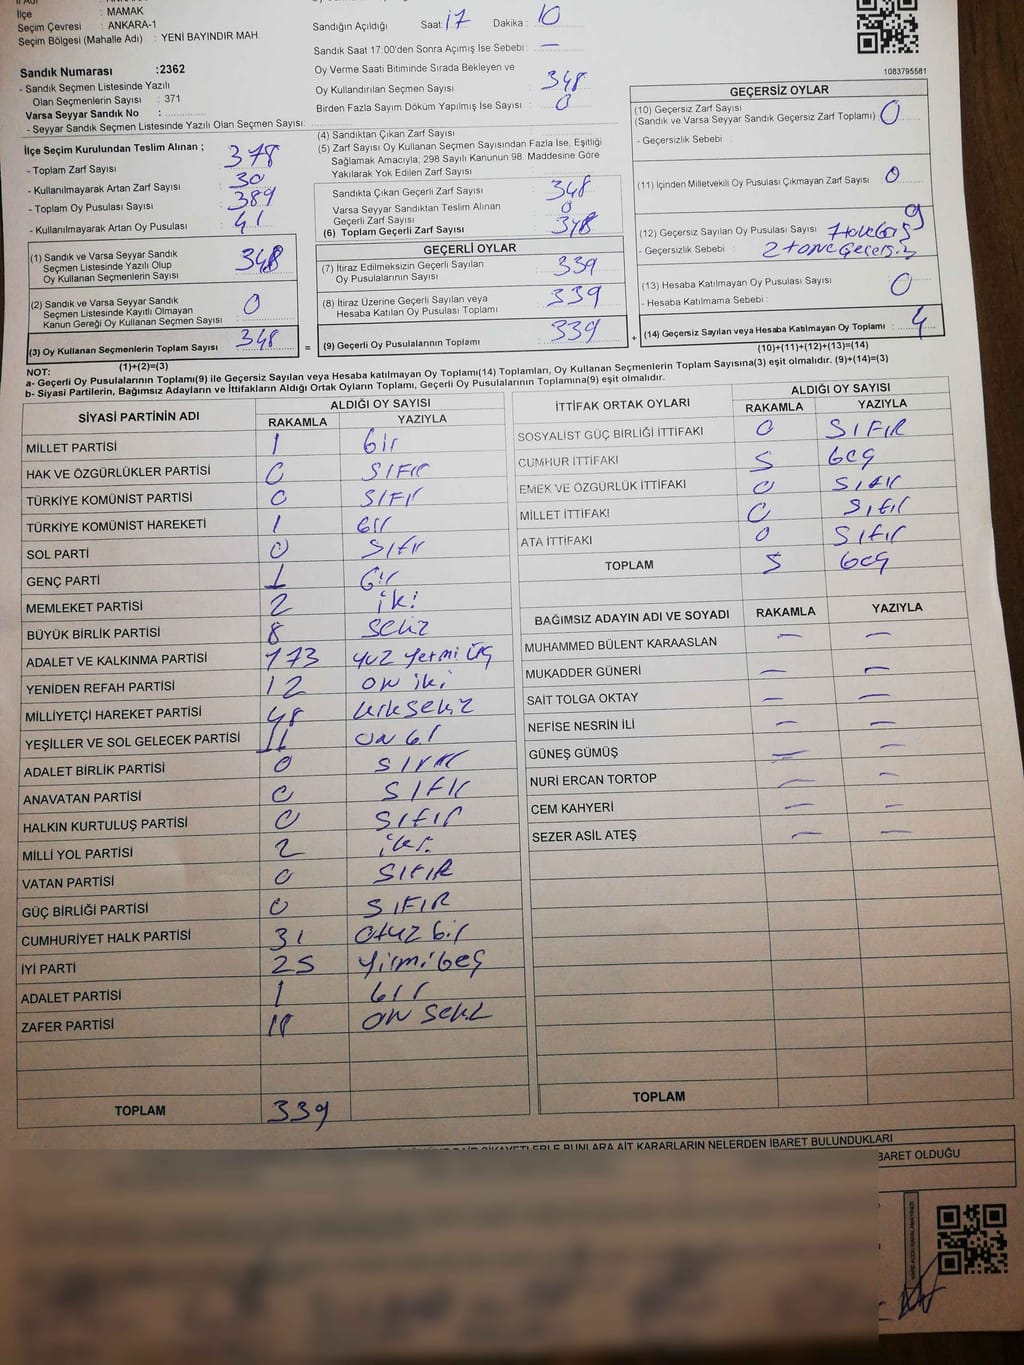 İlçe : MAMAK
Seçim Çevresi : ANKARA-1
Seçim Bölgesi (Mahalle Adı) : YENİ BAYINDIR MAH.
Sandık Numarası :2362
- Sandık Seçmen Listesinde Yazılı
Olan Seçmenlerin Sayısı : 371
Varsa Seyyar Sandık No :
- Seyyar Sandık Seçmen Listesinde Yazılı Olan Seçmen Sayısı:
Sandığın Açıldığı Saat: 17 Dakika : 10
Sandık Saat 17:00'den Sonra Açımış İse Sebebi : —
Oy Verme Saati Bitiminde Sırada Bekleyen ve
Oy Kullandırılan Seçmen Sayısı : 348
Birden Fazla Sayım Döküm Yapılmış İse Sayısı : 0
1083795581
İlçe Seçim Kurulundan Teslim Alınan ;
- Toplam Zarf Sayısı : 378
- Kullanılmayarak Artan Zarf Sayısı : 30
- Toplam Oy Pusulası Sayısı : 389
- Kullanılmayarak Artan Oy Pusulası : 41
(1) Sandık ve Varsa Seyyar Sandık
Seçmen Listesinde Yazılı Olup
Oy Kullanan Seçmenlerin Sayısı 348
(2) Sandık ve Varsa Seyyar Sandık
Seçmen Listesinde Kayıtlı Olmayan
Kanun Gereği Oy Kullanan Seçmen Sayısı : 0
(3) Oy Kullanan Seçmenlerin Toplam Sayısı : 348
(1)+(2)=(3)
(4) Sandıktan Çıkan Zarf Sayısı :
(5) Zarf Sayısı Oy Kullanan Seçmen Sayısından Fazla İse, Eşitliği
Sağlamak Amacıyla, 298 Sayılı Kanunun 98. Maddesine Göre
Yakılarak Yok Edilen Zarf Sayısı :
Sandıkta Çıkan Geçerli Zarf Sayısı : 348
Varsa Seyyar Sandıktan Teslim Alınan
Geçerli Zarf Sayısı : 0
(6) Toplam Geçerli Zarf Sayısı : 348
GEÇERLİ OYLAR
(7) İtiraz Edilmeksizin Geçerli Sayılan
Oy Pusulalarının Sayısı : 339
(8) İtiraz Üzerine Geçerli Sayılan veya
Hesaba Katılan Oy Pusulası Toplamı : 339
= (9) Geçerli Oy Pusulalarının Toplamı : 339 +
GEÇERSİZ OYLAR
(10) Geçersiz Zarf Sayısı
(Sandık ve Varsa Seyyar Sandık Geçersiz Zarf Toplamı) : 0
- Geçersizlik Sebebi :
(11) İçinden Milletvekili Oy Pusulası Çıkmayan Zarf Sayısı : 0
(12) Geçersiz Sayılan Oy Pusulası Sayısı : 9
- Geçersizlik Sebebi :
(13) Hesaba Katılmayan Oy Pusulası Sayısı : 0
- Hesaba Katılmama Sebebi :
(14) Geçersiz Sayılan veya Hesaba Katılmayan Oy Toplamı : 4
(10)+(11)+(12)+(13)=(14)
NOT:
a- Geçerli Oy Pusulalarının Toplamı(9) ile Geçersiz Sayılan veya Hesaba katılmayan Oy Toplamı(14) Toplamları, Oy Kullanan Seçmenlerin Toplam Sayısına(3) eşit olmalıdır. (9)+(14)=(3)
b- Siyasi Partilerin, Bağımsız Adayların ve İttifakların Aldığı Ortak Oyların Toplamı, Geçerli Oy Pusulalarının Toplamına(9) eşit olmalıdır.
SİYASİ PARTİNİN ADI ALDIĞI OY SAYISI
RAKAMLA YAZIYLA
MİLLET PARTİSİ 1 bir
HAK VE ÖZGÜRLÜKLER PARTİSİ 0 SIFIR
TÜRKİYE KOMÜNİST PARTİSİ 0 SIFIR
TÜRKİYE KOMÜNİST HAREKETİ 1 bir
SOL PARTİ 0 SIFIR
GENÇ PARTİ 1 bir
MEMLEKET PARTİSİ 2 iki
BÜYÜK BİRLİK PARTİSİ 8 sekiz
ADALET VE KALKINMA PARTİSİ 173 yüz yetmiş üç
YENİDEN REFAH PARTİSİ 12 on iki
MİLLİYETÇİ HAREKET PARTİSİ 48 kırk sekiz
YEŞİLLER VE SOL GELECEK PARTİSİ 11 on bir
ADALET BİRLİK PARTİSİ 0 SIFIR
ANAVATAN PARTİSİ 0 SIFIR
HALKIN KURTULUŞ PARTİSİ 0 SIFIR
MİLLİ YOL PARTİSİ 2 iki
VATAN PARTİSİ 0 SIFIR
GÜÇ BİRLİĞİ PARTİSİ 0 SIFIR
CUMHURİYET HALK PARTİSİ 31 otuz bir
İYİ PARTİ 25 yirmi beş
ADALET PARTİSİ 1 bir
ZAFER PARTİSİ 18 on sekiz
TOPLAM 339
İTTİFAK ORTAK OYLARI ALDIĞI OY SAYISI
RAKAMLA YAZIYLA
SOSYALİST GÜÇ BİRLİĞİ İTTİFAKI 0 SIFIR
CUMHUR İTTİFAKI 5 beş
EMEK VE ÖZGÜRLÜK İTTİFAKI 0 SIFIR
MİLLET İTTİFAKI 0 SIFIR
ATA İTTİFAKI 0 SIFIR
TOPLAM 5 beş
BAĞIMSIZ ADAYIN ADI VE SOYADI RAKAMLA YAZIYLA
MUHAMMED BÜLENT KARAASLAN — —
MUKADDER GÜNERİ — —
SAİT TOLGA OKTAY — —
NEFİSE NESRİN İLİ — —
GÜNEŞ GÜMÜŞ — —
NURİ ERCAN TORTOP — —
CEM KAHYERİ — —
SEZER ASİL ATEŞ — —
TOPLAM
BUNLARA AİT KARARLARIN NELERDEN İBARET BULUNDUKLARI
BARET OLDUĞU